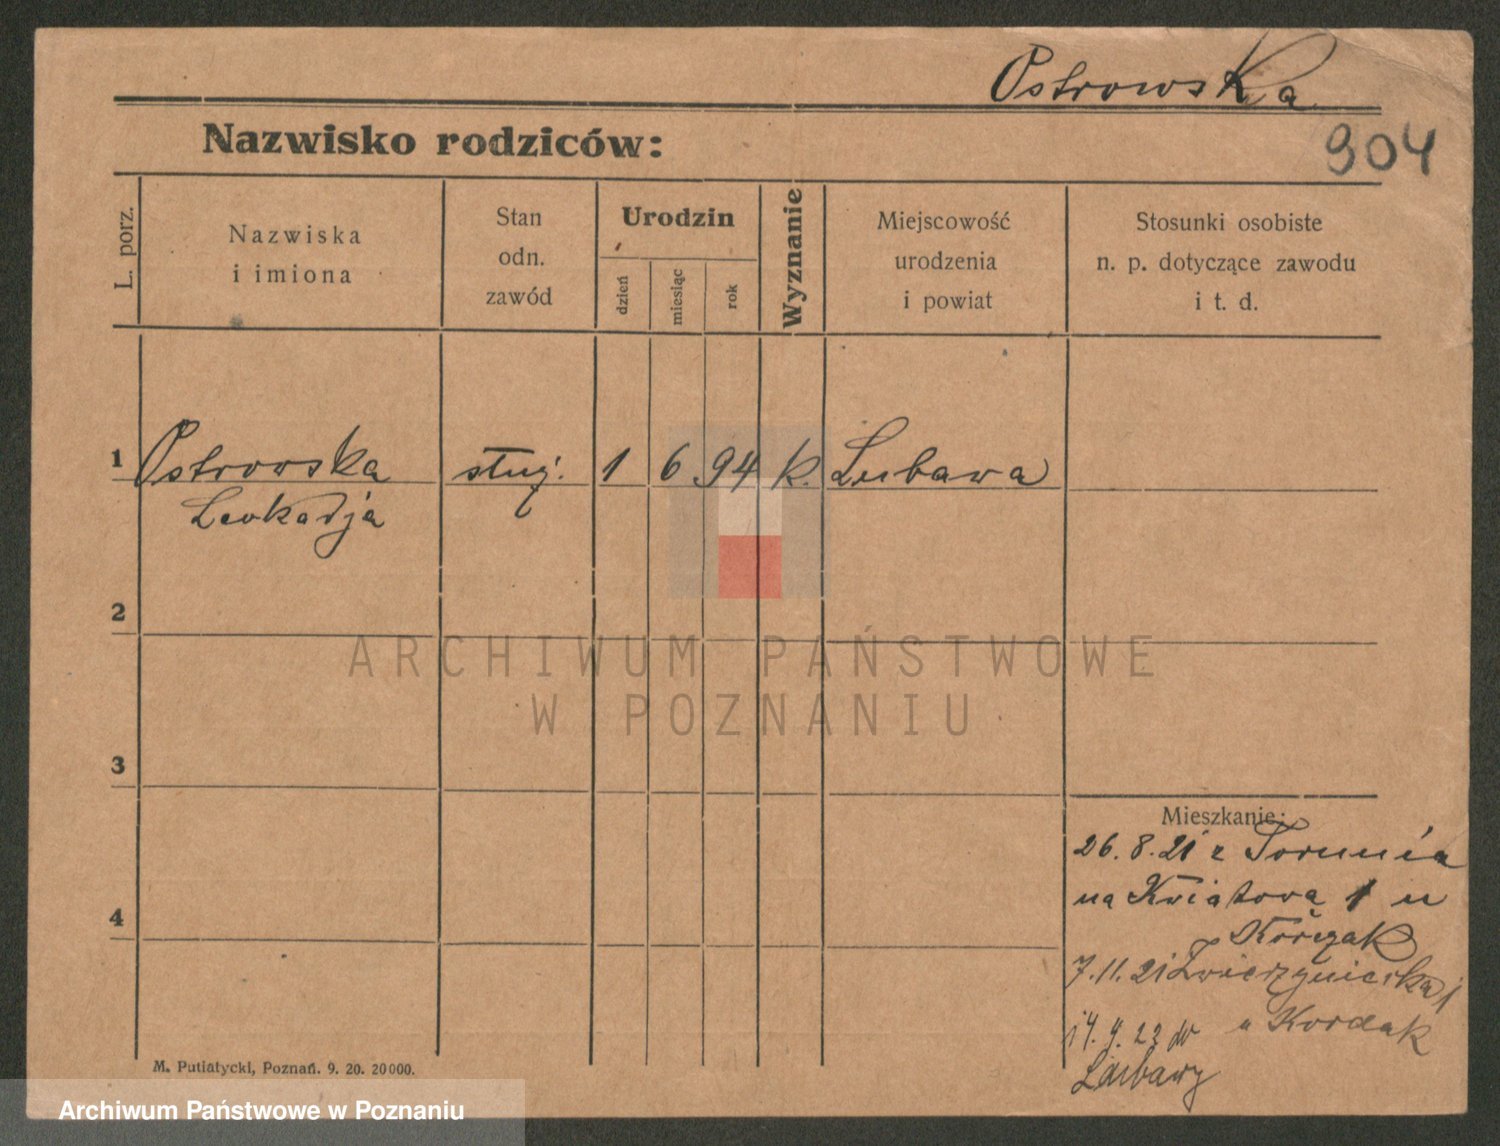 Ostrowska
904
Nazwisko rodziców:
L. porz.
Nazwiska
i imiona
Stan
odn.
zawód
Urodzin
dzień
miesiąc
rok
Wyznanie
Miejscowość
urodzenia
i powiat
Stosunki osobiste
n. p. dotyczące zawodu
i t. d.
1 Ostrowska służ. 1 6 94 k. Lubawa
Leokadja
2
ARCHIWUM PAŃSTWOWE
W POZNANIU
3
Mieszkanie:
26.8.21 z Torunia
na Kwiatowa 1 u
4
7.11.21 Zwierzyniecka 1
u Kordak
4.22 do
Lubawy
M. Putiatycki, Poznań. 9. 20. 20000.
Archiwum Państwowe w Poznaniu